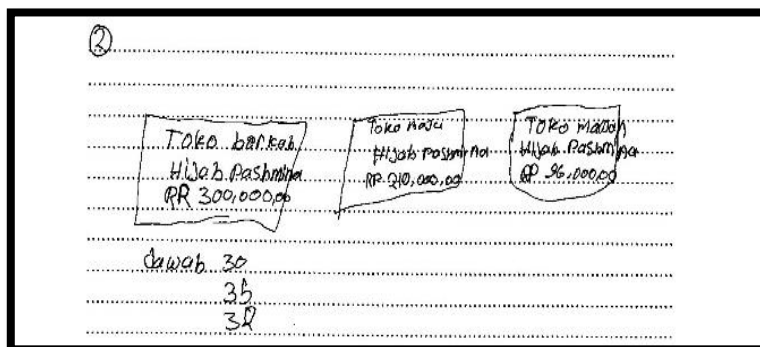 2
Toko barkah
Hijab Pashmina
RP 300,000,00
Toko maju
Hijab Pashmina
RP. 210,000,00
Toko
Hijab Pashmina
RP 96,000,00
Jawab 30
35
32